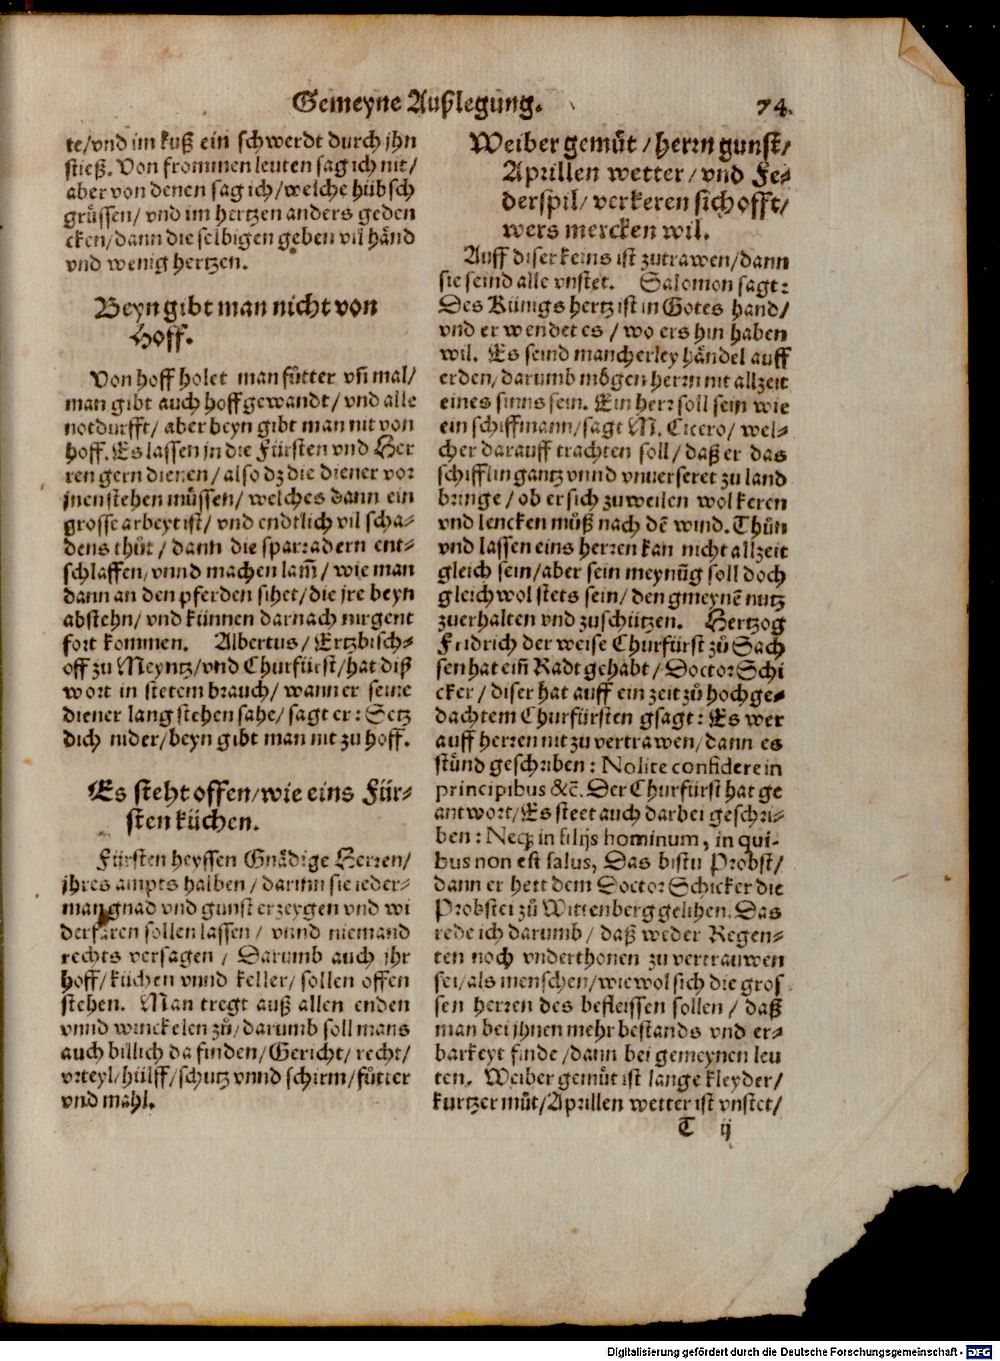 Gemeyne Außlegung. 74.
te/vnd im kuß ein schwerdt durch jhn
stieß. Von frommen leuten sag ich nit/
aber von denen sag ich/welche hübsch
grüssen/ vnd im hertzen anders geden
cken/dann die selbigen geben vil händ
vnd wenig hertzen.
Beyn gibt man nicht von
Hoff.
Von hoff holet man fůtter vñ mal/
man gibt auch hoffgewandt/ vnd alle
notdurfft/ aber beyn gibt man nit von
hoff. Es lassen jn die Fürsten vnd Her
ren gern dienen/ also dz die diener vor
jnen stehen müssen/ welches dann ein
grosse arbeyt ist/ vnd endtlich vil scha-
dens thůt/ dann die sparradern ent-
schlaffen/vnnd machen lam̃/ wie man
dann an den pferden sihet/die jre beyn
abstehn/ vnd künnen darnach nirgent
fort kommen. Albertus/ Ertzbisch-
off zu Meyntz/vnd Churfürst/hat diß
wort in stetem brauch/ wann er seine
diener lang stehen sahe/ sagt er: Setz
dich nider/beyn gibt man nit zu hoff.
Es steht offen/wie eins Für-
sten küchen.
Fürsten heyssen Gnädige Herren/
jhres ampts halben/ darum̃ sie ieder-
man gnad vnd gunst erzeygen vnd wi
derfaren sollen lassen/ vnnd niemand
rechts versagen/ Darumb auch jhr
hoff/ küchen vnnd keller/ sollen offen
stehen. Man tregt auß allen enden
vnnd winckelen zů/ darumb soll mans
auch billich da finden/Gericht/ recht/
vrteyl/hülff/schutz vnnd schirm/fůtter
vnd mahl.
Weiber gemůt/herrn gunst/
Aprillen wetter/ vnd Fe-
derspil/ verkeren sich offt/
wers mercken wil.
Auff diser keins ist zutrawen/dann
sie seind alle vnstet. Salomon sagt:
Des Künigs hertz ist in Gotes hand/
vnd er wendet es/ wo ers hin haben
wil. Es seind mancherley händel auff
erden/darumb mögen herrn nit allzeit
eines sinns sein. Ein herr soll sein wie
ein schiffmann/sagt M. Cicero/ wel-
cher darauff trachten soll/ daß er das
schifflin gantz vnnd vnuerseret zu land
bringe/ ob er sich zuweilen wol keren
vnd lencken můß nach dē wind. Thůn
vnd lassen eins herren kan nicht allzeit
gleich sein/aber sein meynūg soll doch
gleichwol stets sein/ den gmeynē nutz
zuerhalten vnd zuschützen. Hertzog
Fridrich der weise Churfürst zů Sach
sen hat eim̃ Radt gehabt/ Doctor Schi
cker/ diser hat auff ein zeit zů hochge-
dachtem Churfürsten gsagt: Es wer
auff herren nit zu vertrawen/dann es
stůnd geschriben: Nolite confidere in
principibus &c̄. Der Churfürst hat ge
antwort/ Es steet auch darbei geschri-
ben: Neq; in filijs hominum, in qui-
bus non est salus, Das bistu Probst/
dann er hett dem Doctor Schicker die
Probstei zů Wittenberg gelihen. Das
rede ich darumb/ daß weder Regen-
ten noch vnderthonen zu vertrauwen
sei/als menschen/wiewol sich die gros
sen herren des befleissen sollen/ daß
man bei jhnen mehr bestands vnd er-
barkeyt finde/dann bei gemeynen leu
ten. Weiber gemůt ist lange kleyder/
kurtzer můt/Aprillen wetter ist vnstet/
T ij
Digitalisierung gefördert durch die Deutsche Forschungsgemeinschaft - DFG